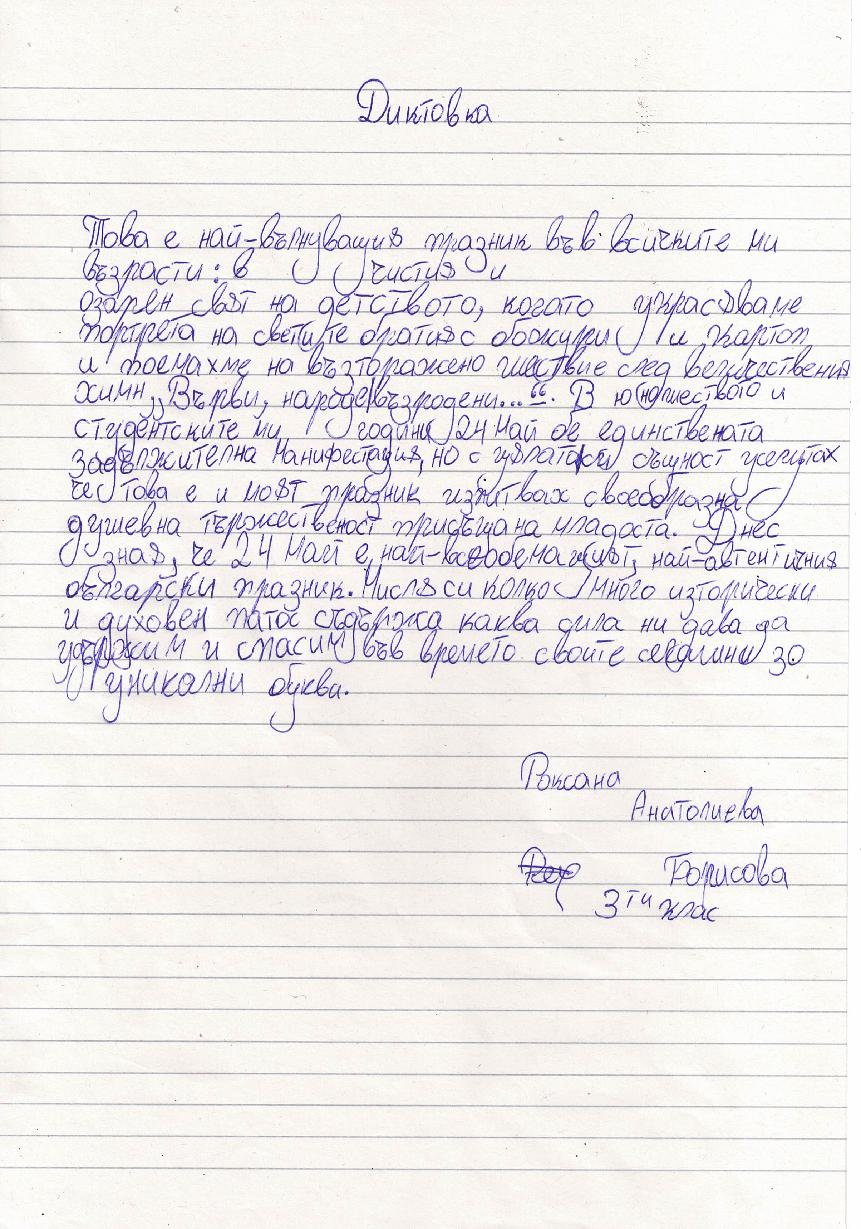 Диктовка
Това е най-вълнуващия празник във всичките ми
възрасти: в чистия и
озарен свят на детството, когато украсяваме
портрета на светите братия с обожури и картоп
и поемахме на възторажено шествие след величествения
химн „Върви, народе възродени...“. В юношеството и
студентските ми години 24 Май бе единствената
задължителна манифестация, но с цялата си същност усещтах
че това е и моят празник изпитвах своеобразна
душевна тържественост присъщана младоста. Днес
зная, че 24 Май е най-всеобемащият, най-автентичния
български празник. Мисля си колко много изторически
и духовен патос съдържа каква сила ни дава да
удържим и спасим във времето своите седмини 30
уникални буква.
Роксана
Анатолиева
Борисова
3ти клас